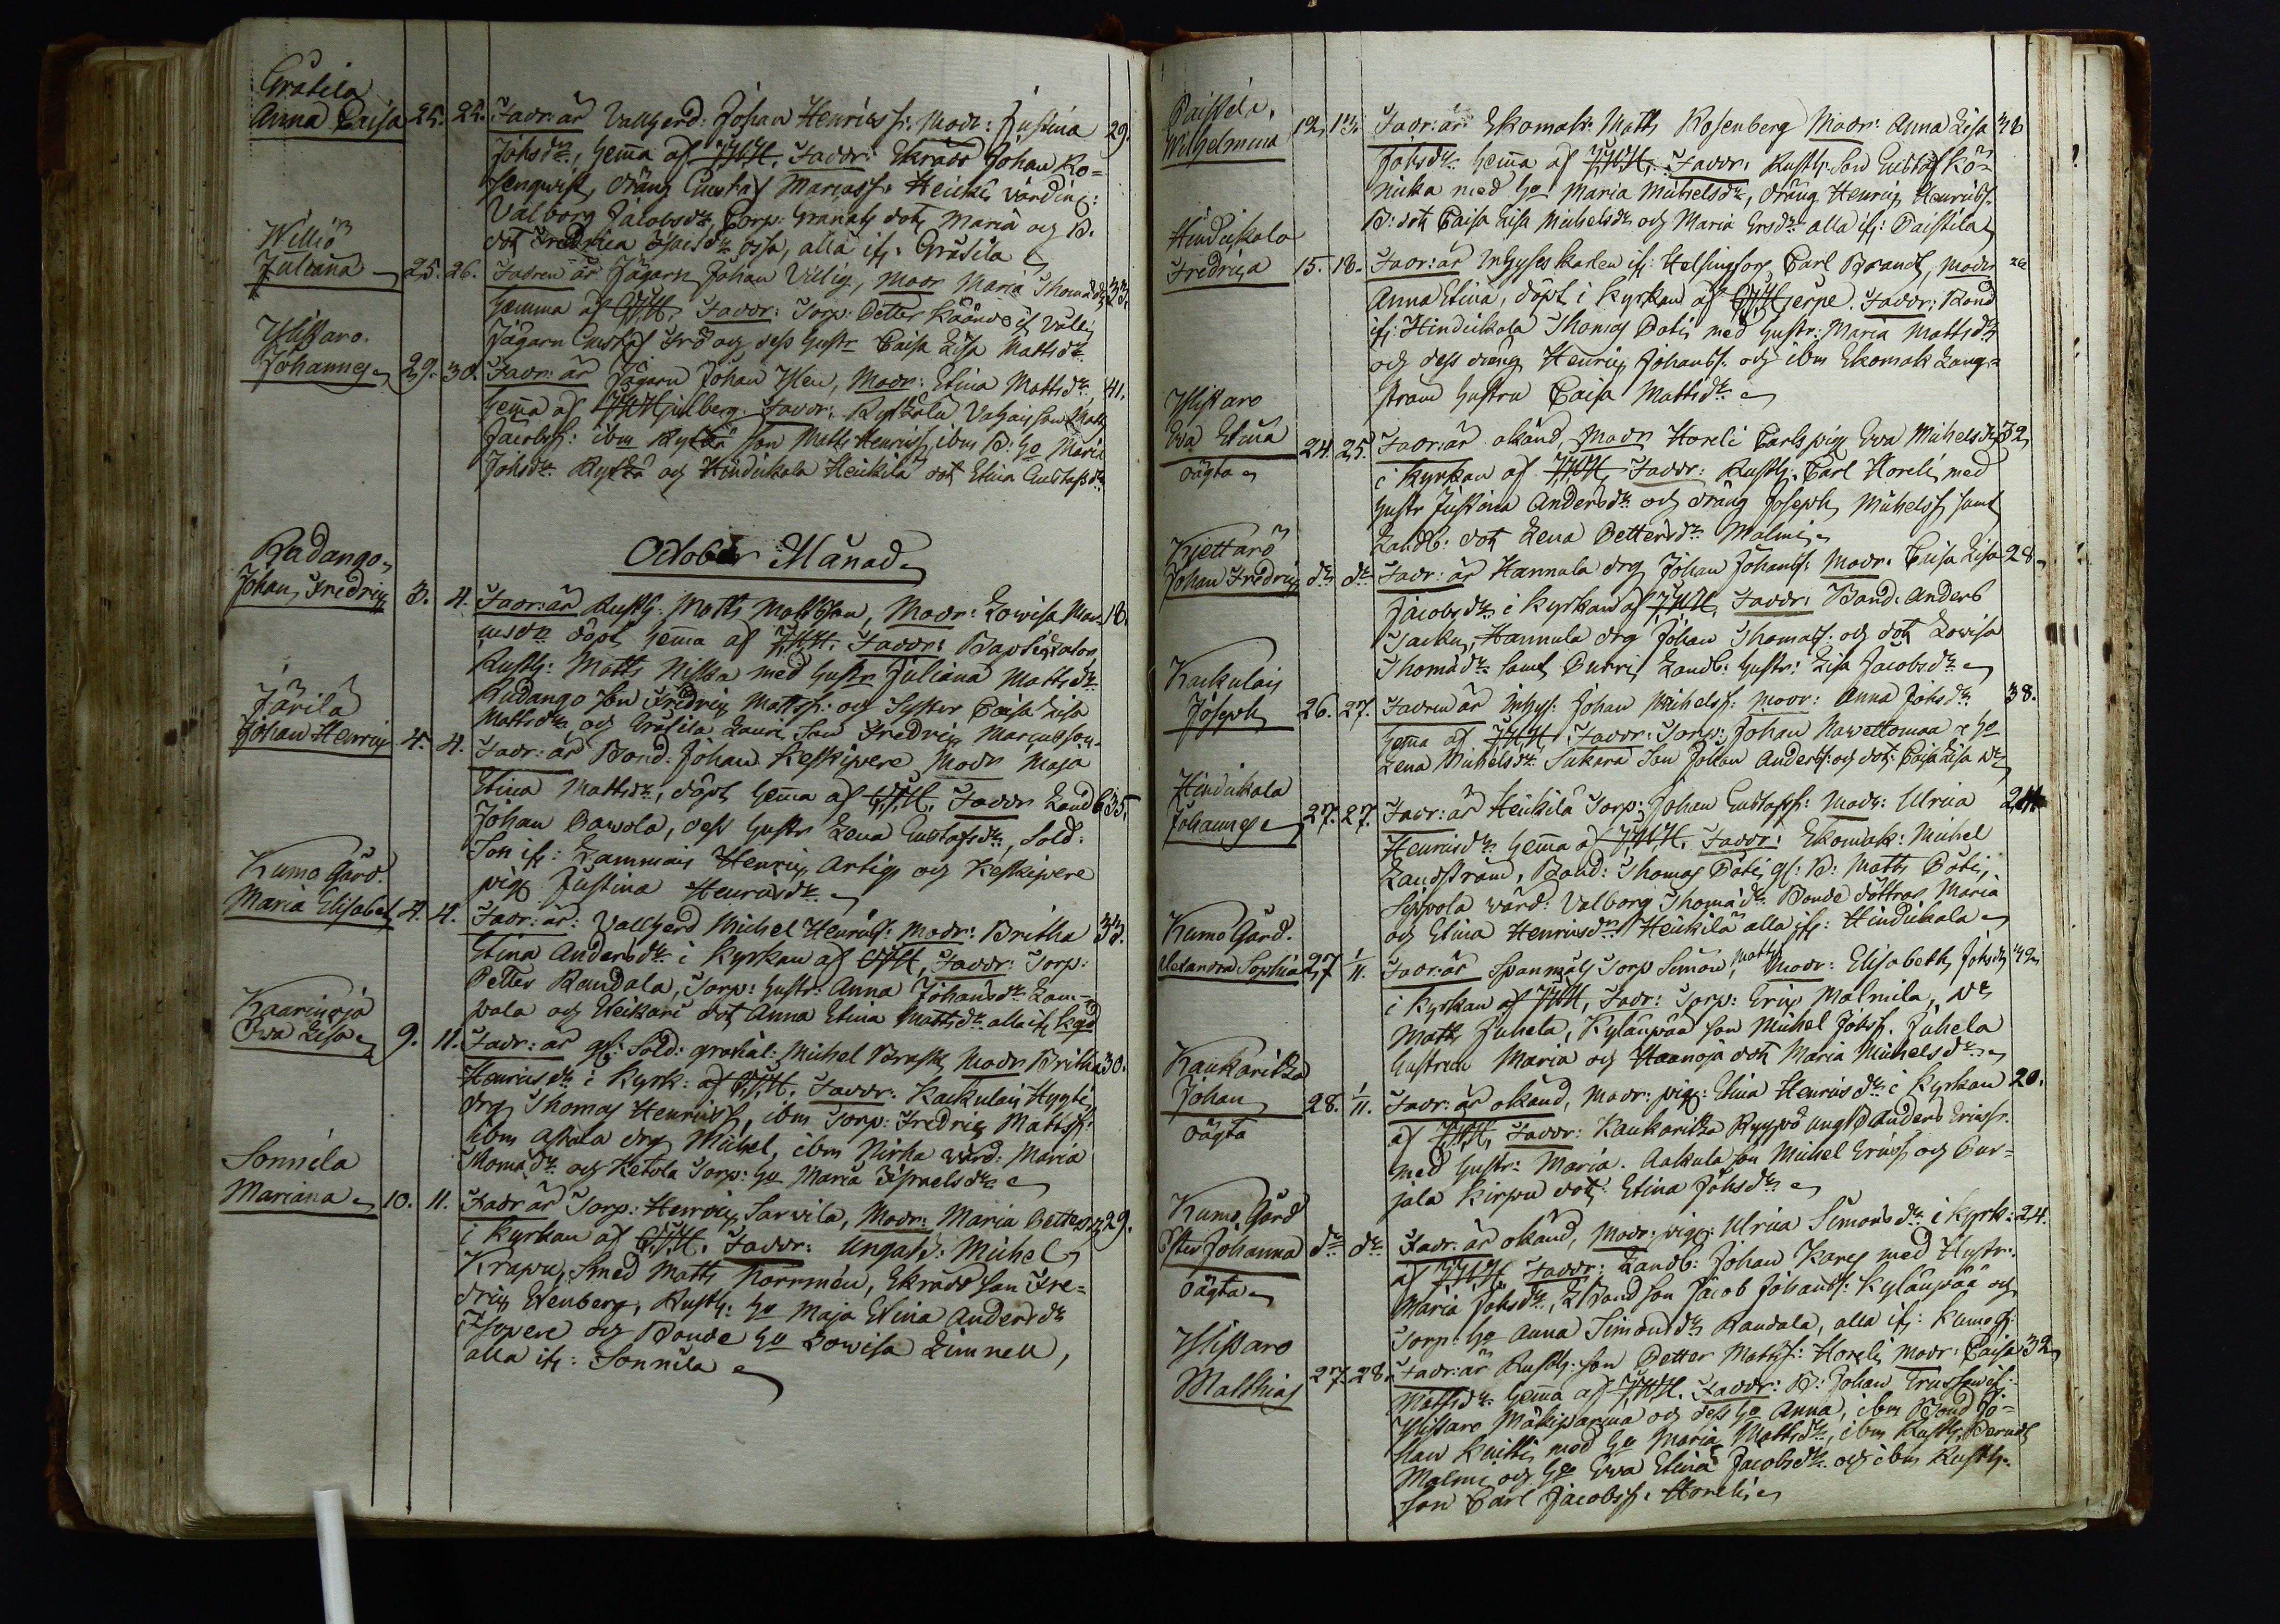 Gråtila
Anna Caisa 25. 25. Fadr: är Vallherd: Johan Henrics s: Modr: Justina 29.
Johsdr, hema af JHH. Faddr: Skrädd Johan Ro=
senqwist, dräng Gustaf Marcuss: Heicki värdin:
Valborg Jacobsdr, Corp: Granats dotr Maria och B.
dot Fredrica alla ifr: Gråsila
Williö
Juliana 25. 26. Fadren är Jägarn Johan Villig, Modr Maria Thomædr 33.
hemma af GHH. Faddr: Torp: Petter
Jägarn Gustaf Frö och dess hustr Caisa Lisa Mattsdr.
Ylistaro.
Johannes 29. 30. Fadr: är Jägarn Johan Ylen, Modr: Stina Mattsdr 41.
hema af Faddr:
Jacobss: ibm son Matts Henricss, ibm B: ho Maria
Johsdr. och Hindickala Heickilä dot Stina Gustafsdr
October Månad
Rudango
Johan Fredric 3. 4. Fadr: är Rusth: Matts Mattsson, Modr: Lowisa Mar= 18.
cusdr döpt hema af JHH. Faddr:
Rusth: Matts Niska med hustr Juliana Mattsdr
Rudango son Fredric Mattss: och Syster Caisa Lisa
Mattsdr och Gråsila Lauri Son Fredric Marcusson
Järilä
Johan Henric 4. 4. Fadr: är Bond: Johan Keskipere Modr Maja
Stina Mattsdr, döpt hema af GHH. Faddr Landb 35.
Johan Pawola, dess hustr Lena Gustafsdr, Sold:
Son ifr: Lammais Henric Artig och Keskipere
pig: Justina Henricsdr
Kumo Gård.
Maria Elisabet 4. 4. Fadr: är: Vallherd Michel Henricss: Modr: Britha 33.
Stina Andersdr i Kyrkan af GHH, Faddr: Torp:
Petter Randala, Torp: hustr: Anna Johansdr Lam=
pala och Heickari dot Anna Stina Mattsdr alla ifr Kgd
Kaarinoja
Ewa Lisa 9. 11. Fadr: är gl: Sold: gratial: Michel Brask Modr Britha 30.
Henricsdr i Kyrk: af GHH. Faddr: Kackulais Hyyti
drg Thomas Henricss, ibm Torp: Fredric Mattss:
ibm Astala drg Michel, ibm Pirha värd: Maria
Thomædr och Ketola Torp: ho Maria Ismelsdr
Sonnila
Mariana 10. 11. Fadr är Torp: Henric Sarvila, Modr: Maria Pettersdr 29.
i Kyrkan af GHH. Faddr: Ungast: Michel
Krapu, Smed Matts Norrmén, Skrädd son Fre=
dric Stenberg, Rusth: ho Maja Stina Andersdr
Isopere och Bonde ho Lowisa Linnell,
alla ifr: Sonnila
Paistila.
Wilhelmina 12. 13. Fadr: är: Skomak: Matts Rosenberg Modr: Anna Lisa 38
Johsdr hema af JHH. Faddr: Rusth: Son Gustaf Kö=
nicka med ho Maria Michelsdr, dräng Henric Henricss.
B: dot Caisa Lisa Michelsdr och Maria Ersdr alla ifr: Paistila
Hindickala
Fredrica 15. 18. Fadr: är Inhyses karlen ifr: Helsingfors Carl Brandt, Modr 26
Anna Stina, döpt i Kyrkan af GHHjerne. Faddr: Bond
ifr: Hindickala Thomas Pati med hustr: Maria Mattsdr
och dess dräng Henric Johanss: och ibm Skomak Lang=
ström hustru Caisa Mattsdr
Ylistaro
Eva Stina 24. 25. Fadr: är okänd, Modr Horeli Carls pig Ewa Michelsdr 32
oägta i Kyrkan af JHH Faddr: Rusth: Carl Horeli med
hustr Justina Andersdr och dräng Joseph Michelss samt
Landb: dotr Lena Pettersdr Malmi
Kjettarö
Johan Fredric dr dr Fadr: är Hannula drg Johan Johanss: Modr: Caisa Lisa 28.
Jacobsdr i Kyrkan af JHH. Faddr: Bond: Anders
Jacku, Hannula drg Johan Thomass: och dotr Lowisa
Thomædr samt Purri Landb: hustr: Lisa Jacobsdr
Kackulais
Joseph 26. 27. Fadren är inhys: Johan Michelss: Modr: Anna Johsdr 38.
hema af JHH. Faddr: Torp: Johan Nawettomaa & ho
Lena Michelsdr Sukara Son Johan Anderss: och dot: Caisa Lisa dr
Hindickala
Johannes 27. 27. Fadr: är Heickilä Torp: Johan Gustafss: Modr: Ulrica 24
Henricsdr hema af JHH. Faddr: Skomak: Michel
Landström, Bond: Thomas Pati, gl: B: Matts Pati,
Seppola värd: Valborg Thomædr Bonde döttrar Maria
och Stina Henricsdr Heickilä alla ifr: Hindickala
Kumo Gård.
Alexandra Sophia 27 1/11. Fadr: är Spanmåls Torp Simon Matts Modr: Elisabeth Johsdr 42
i Kyrkan af JHH. Fadr: Torp: Eric Malmila,
Matts Juhela, Kyläinpää son Michel Johss. Juhela
hustrun Maria och Haanoja dotr Maria Michelsdr
Kaukaritza
Johan 28. 1/11. Fadr: är okänd, Modr: pig: Stina Henricsdr i Kyrkan 20.
oägta af JHH, Faddr: Kaukaritza Ryypö ung B Anders Ericss:
med hustr: Maria. Aakula son Michel Ericss och Pur=
jala Kirpu dotr: Stina Johsdr
Kumo Gård
Johanna dr dr Fadr: är okänd, Modr: pig: Ulrica Simonsdr i Kyrk: 24.
oägta af JHH Faddr: Landb: Johan Kares med Hustr:
Maria Johsdr, L Bond son Jacob Johanss: Kyläinpää och
Torp: ho Anna Simonsdr Randala, alla ifr: Kumo g:
Ylistaro
Matthias 27. 28. Fadr: är Rusth: son Petter Mattss: Horeli Modr: Caisa 32
Mattsdr hema af JHH. Faddr: B: Johan
Ylistaro Mäkiparina och dess ho Anna, ibm Bond Jo=
han Knitti med ho Maria Mattsdr, ibm Rusth. Berndt
Malmi och ho Ewa Stina Jacobsdr och ibm Rusth:
son Carl Jacobss: Horeli